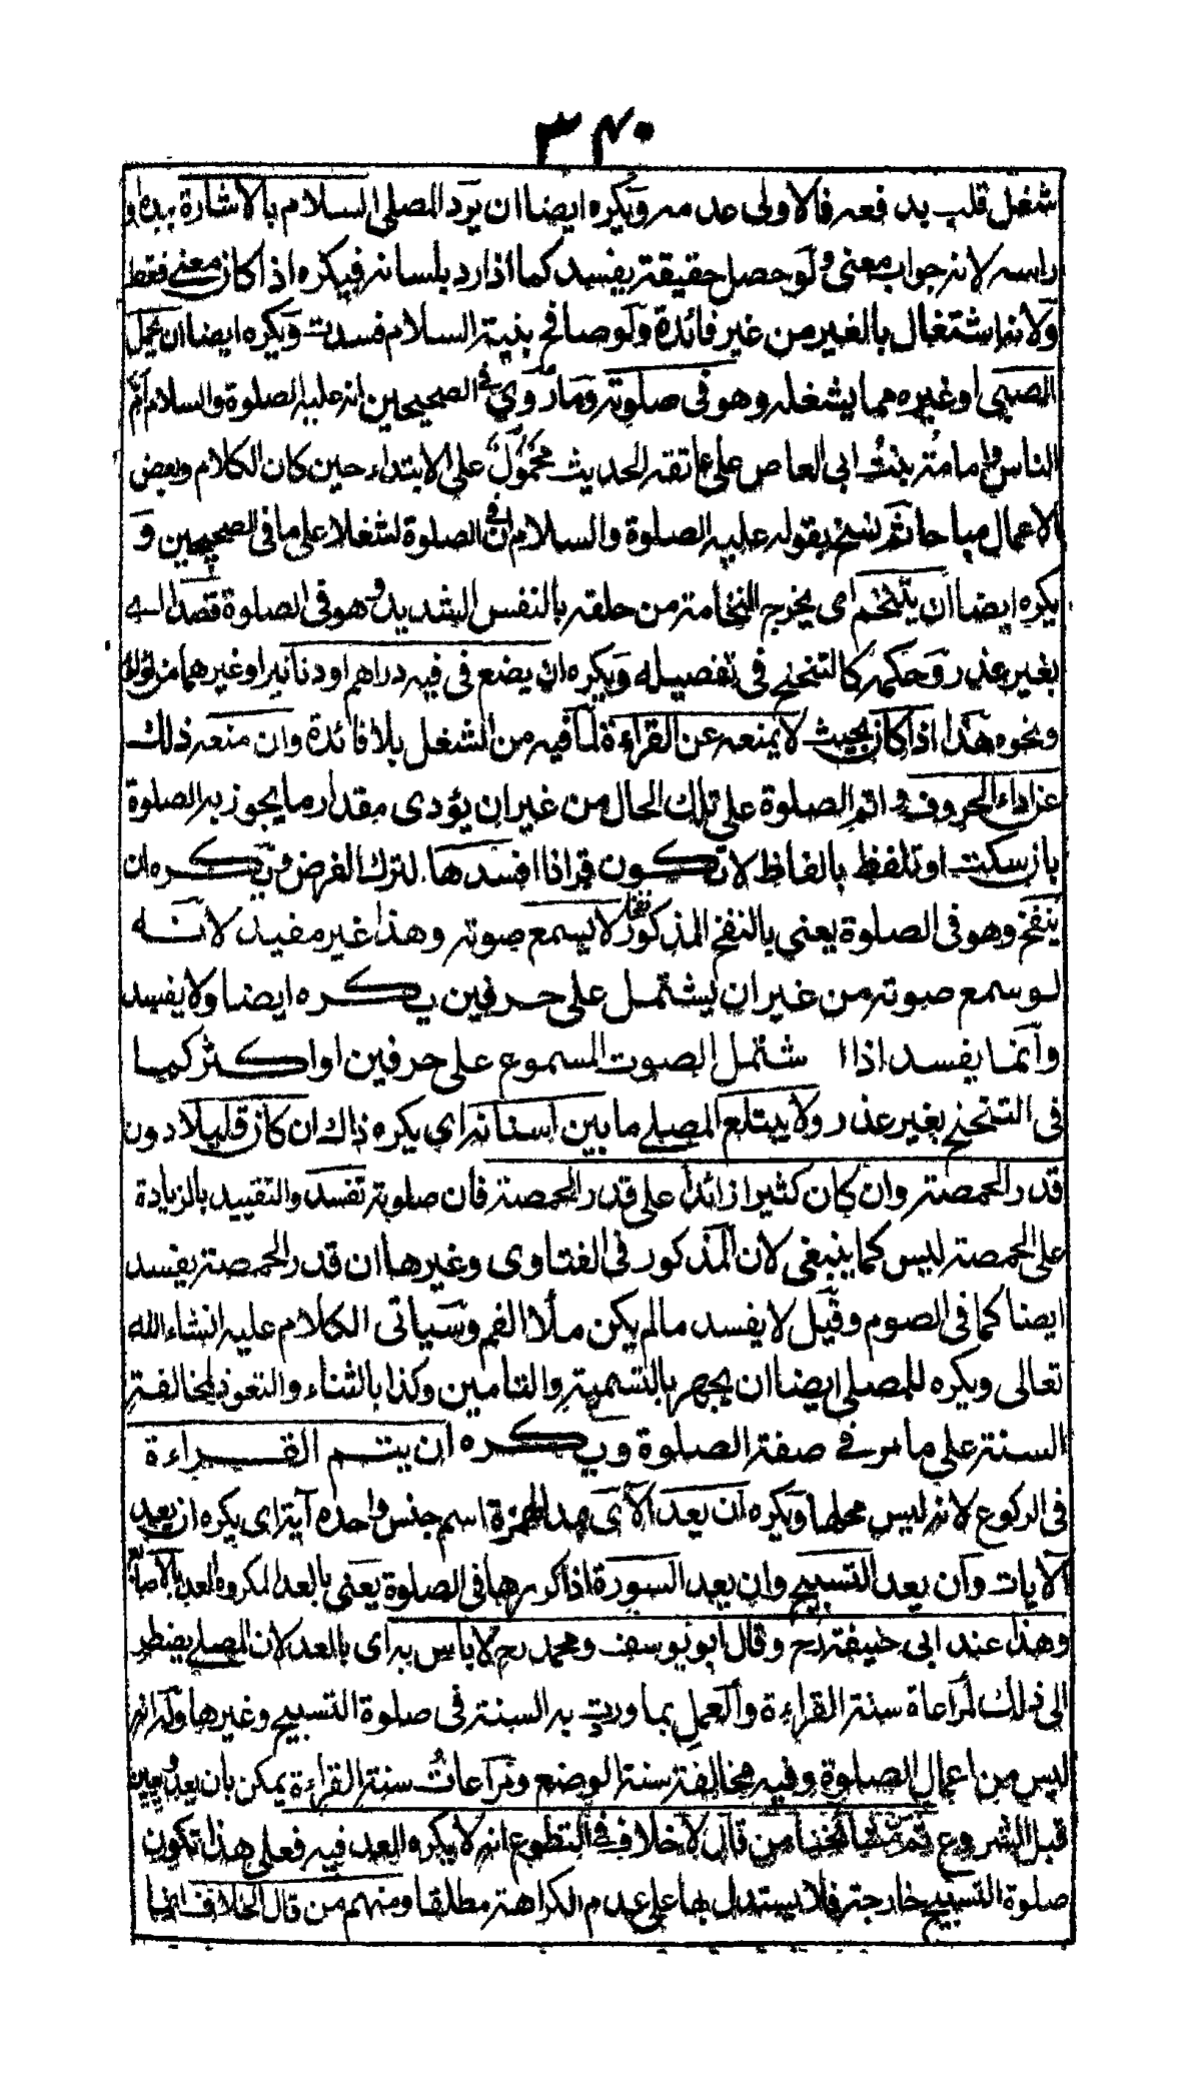 ٣٤٠
شغل قلب بدفعه فالاولى عدمه ويكره ايضا ان يرد المصلى السلام بالاشارة بيده او
راسه لانه جواب معنى ولو حصل حقيقة يفسد كما اذا رد بلسانه فيكره اذا كان معنى فقط
ولانه اشتغال بالغير من غير فائدة ولو صافح بنية السلام فسدت ويكره ايضا ان يحمل
الصبى او غيره مما يشغله وهو فى صلوته وما روي فى الصحيحين انه عليه الصلوة والسلام أمّ
الناس وامامة بنت ابى العاص على عاتقه الحديث محمول على الابتداء حين كان الكلام وبعض
الاعمال مباحا ثم نسخ بقوله عليه الصلوة والسلام ان فى الصلوة لشغلا على ما فى الصحيحين و
يكره ايضا ان يتنخم اى يخرج النخامة من حلقه بالنفس الشديد وهو فى الصلوة قصدا اے
بغير عذر وحكمه كالتنحنح فى تفصيله ويكره ان يضع فى فيه دراهم او دنانير او غيرهما من لؤلؤ
ونحوه هذا اذا كان بحيث لا يمنعه عن القراءة لما فيه من الشغل بلا فائدة وان منعه ذلك
عن اداء الحروف واتم الصلوة على تلك الحال من غير ان يؤدى مقدار ما يجوز به الصلوة
بان سكت او تلفظ بالفاظ لا تكون قرانا افسدها لترك الفرض ويكره ان
ينفخ وهو فى الصلوة يعني بالنفخ المذكور نفخا لا يسمع صوته وهذا غير مفيد لانه
لو سمع صوته من غير ان يشتمل على حرفين يكره ايضا ولا يفسد
وانما يفسد اذا ا شتمل الصوت المسموع على حرفين او اكثر كما
فى التنحنح بغير عذر ولا يبتلع المصلے ما بين اسنانه اى يكره ذاك ان كان قليلا دون
قدر الحمصة وان كان كثيرا زائدا على قدر الحمصة فان صلوته تفسد والتقييد بالزيادة
على الحمصة ليس كما ينبغى لان المذكور فى الفتاوى وغيرها ان قدر الحمصة يفسد
ايضا كما فى الصوم وقيل لا يفسد ما لم يكن ملأ الفم وسياتى الكلام عليه انشاء الله
تعالى ويكره للمصلى ايضا ان يجهر بالتسمية والتامين وكذا بالثناء والتعوذ لمخالفة
السنة على ما مر فے صفة الصلوة ويكره ان يتم القراءة
فى الركوع لانه ليس محلها ويكره ان يعد الآى بمد الهمزة اسم جنس واحده آية اى يكره ان يعد
الآيات وان يعد التسبيح وان يعد السورة اذا كررها فى الصلوة يعنى بالعد المكروه العد بالاصابع
وهذا عند ابى حنيفة رح وقال ابو يوسف ومحمد رح لا باس به اى بالعد لان المصلے يضطر
الى ذلك لمراعاة سنة القراءة والعمل بما وردت به السنة فى صلوة التسبيح وغيرها وله انه
ليس من اعمال الصلوة وفيه مخالفة سنة الوضع ومراعات سنة القراءة يمكن بان يعد ويعين
قبل الشروع ثم من مشائخنا من قال لا خلاف فى التطوع انه لا يكره العد فيه فعلى هذا تكون
صلوة التسبيح خارجة فلا يستدل بها على عدم الكراهة مطلقا ومنهم من قال الخلاف انما